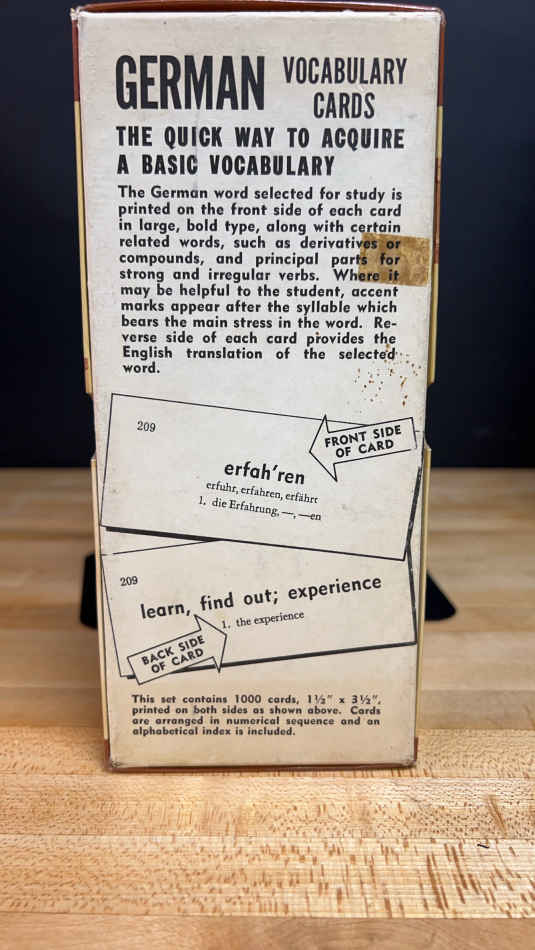 GERMAN VOCABULARY CARDS
THE QUICK WAY TO ACQUIRE
A BASIC VOCABULARY
The German word selected for study is
printed on the front side of each card
in large, bold type, along with certain
related words, such as derivatives or
compounds, and principal parts for
strong and irregular verbs. Where it
may be helpful to the student, accent
marks appear after the syllable which
bears the main stress in the word. Re-
verse side of each card provides the
English translation of the selected
word.
209
FRONT SIDE
OF CARD
erfah′ren
erfuhr, erfahren, erfährt
1. die Erfahrung, —, —en
209
learn, find out; experience
1. the experience
BACK SIDE
OF CARD
This set contains 1000 cards, 1½″ x 3½″,
printed on both sides as shown above. Cards
are arranged in numerical sequence and an
alphabetical index is included.